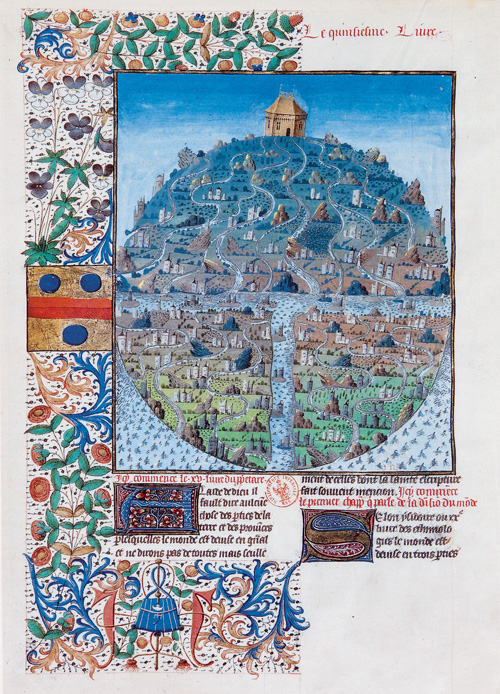 Le quinsiesme Livre.
Icy commence le xv. liure du ppetaire
A Laide de dieu il
fault dire aulcune
chose des pties de la
terre et des prouices
p lesquelles le monde est deuise en gnal
et ne dirons pas de toutes mais seulle
ment de celles dont la sainte escripture
fait souuent mencion. Icy commece
le premier chapp q parle de la diuisio du mode
Selon ysidoire ou xve
liure des ethimolo
gies le monde est
deuise en trois pties